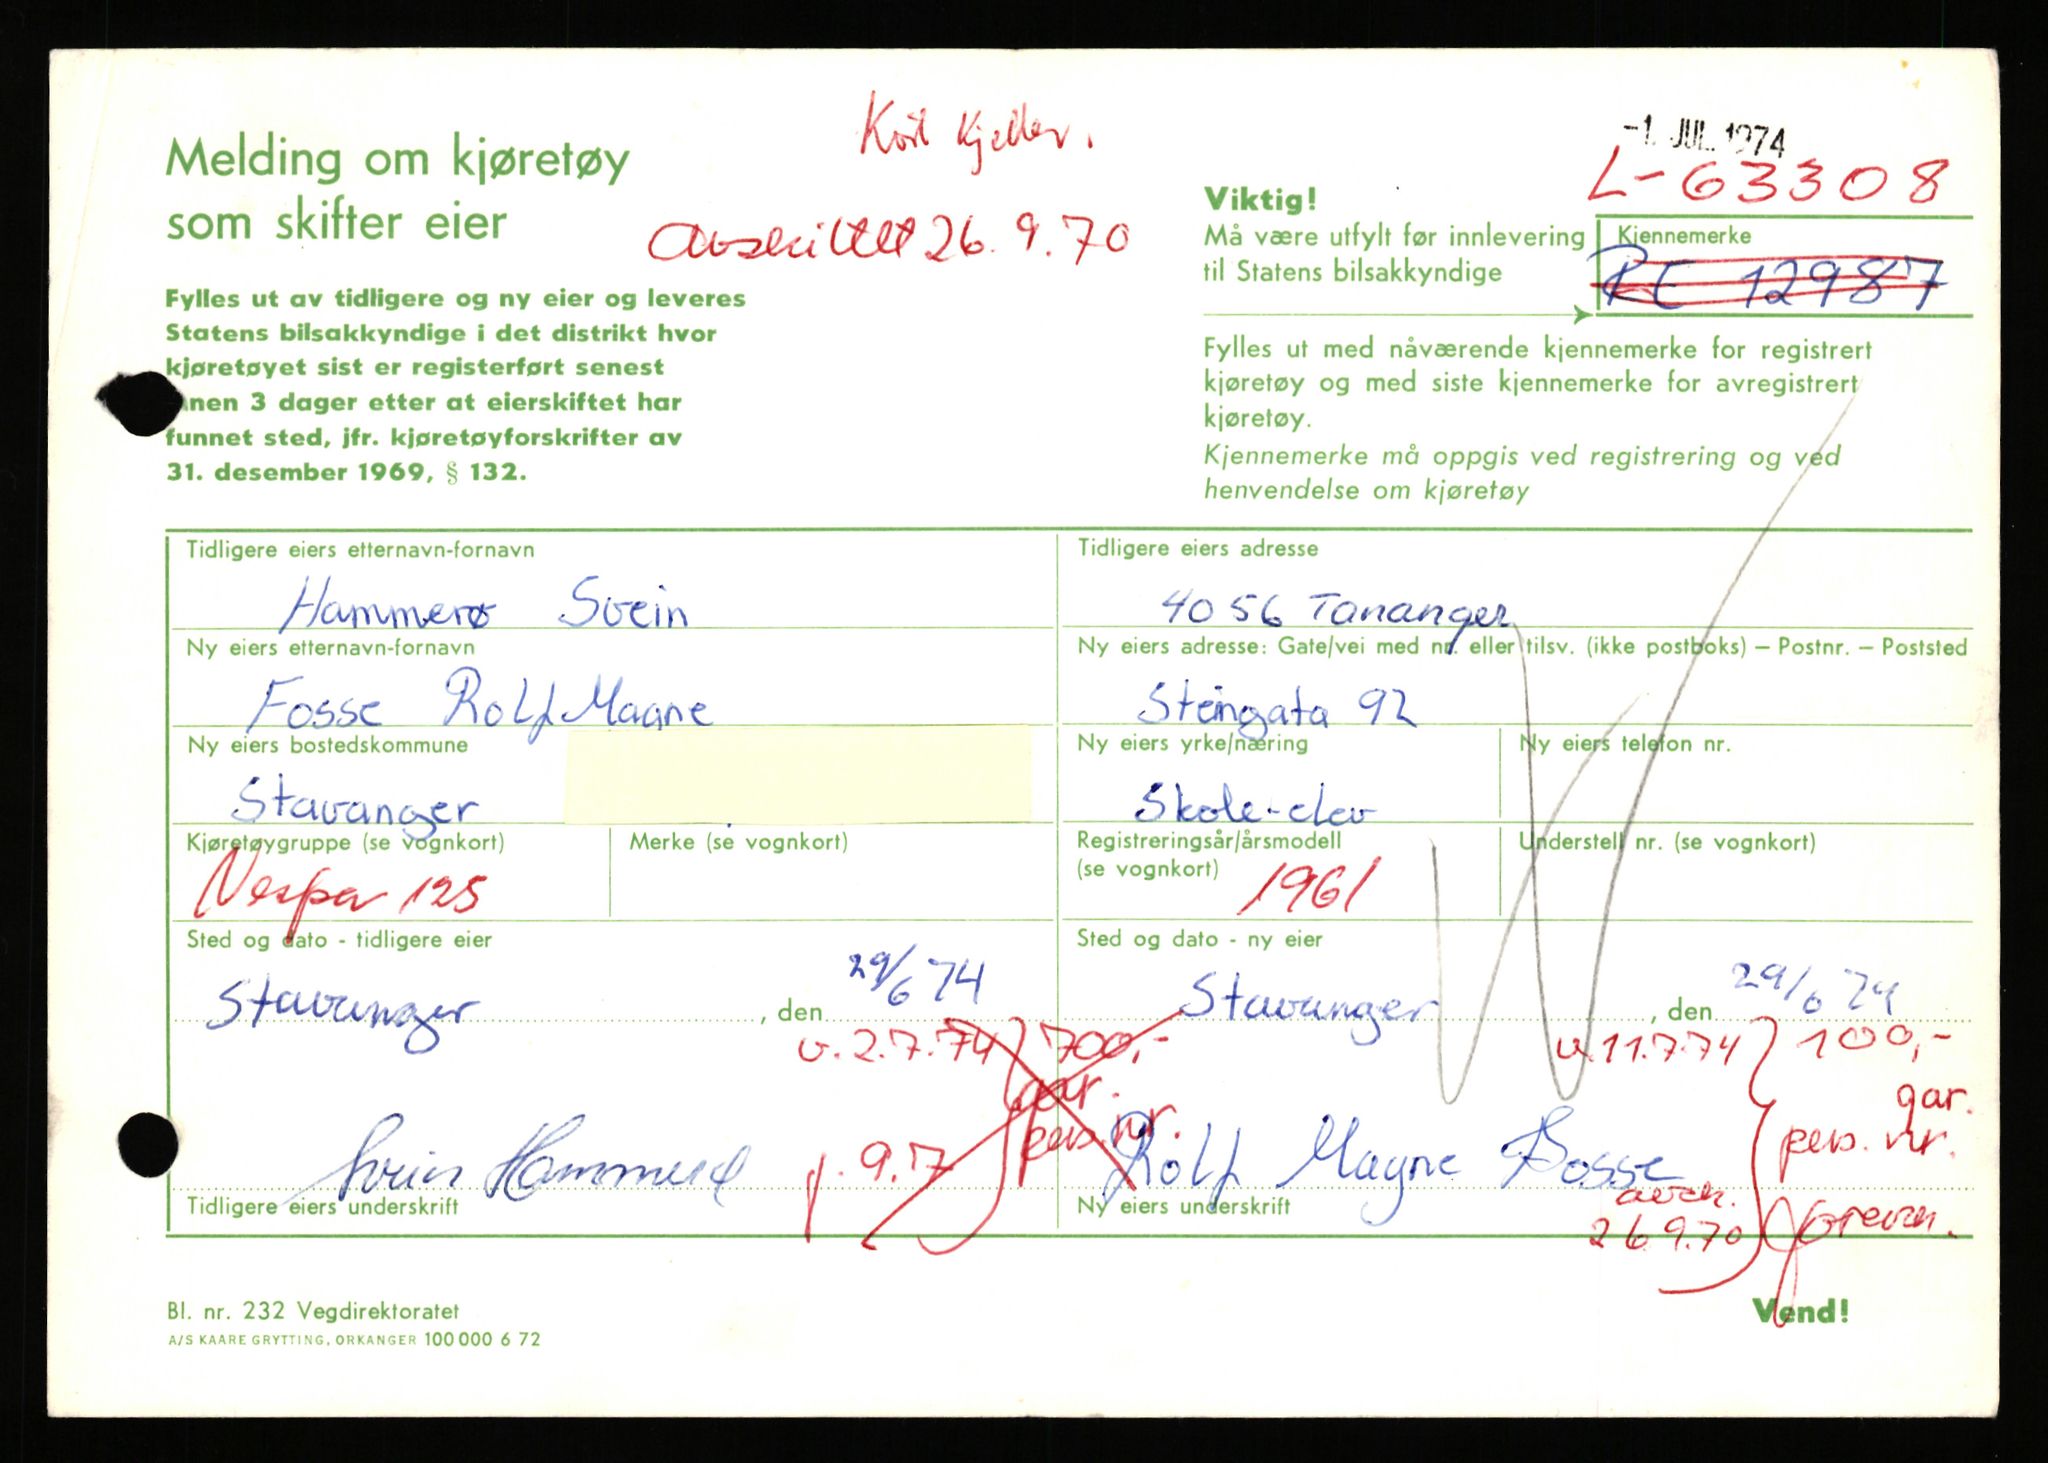 Kort Kjeller.
-1. JUL. 1974
Melding om kjøretøy
som skifter eier
Avskiltet 26.9.70
L-63308
Viktig!
Må være utfylt før innlevering
til Statens bilsakkyndige
Kjennemerke
RE 12987
Fylles ut av tidligere og ny eier og leveres
Statens bilsakkyndige i det distrikt hvor
kjøretøyet sist er registerført senest
nnen 3 dager etter at eierskiftet har
funnet sted, jfr. kjøretøyforskrifter av
31. desember 1969, § 132.
Fylles ut med nåværende kjennemerke for registrert
kjøretøy og med siste kjennemerke for avregistrert
kjøretøy.
Kjennemerke må oppgis ved registrering og ved
henvendelse om kjøretøy
Tidligere eiers etternavn-fornavn
Hammerø Svein
Tidligere eiers adresse
4056 Tananger
Ny eiers etternavn-fornavn
Fosse Rolf Magne
Ny eiers adresse: Gate/vei med nr. eller tilsv. (ikke postboks) – Postnr. – Poststed
Steingata 92
Ny eiers bostedskommune
Stavanger
Ny eiers yrke/næring
Skole-elev
Ny eiers telefon nr.
Kjøretøygruppe (se vognkort)
Vespa 125
Merke (se vognkort)
Registreringsår/årsmodell
(se vognkort)
1961
Understell nr. (se vognkort)
Sted og dato - tidligere eier
Stavanger, den 29/6 74
Sted og dato - ny eier
Stavanger, den 29/6 74
v. 2.7.74 700,-
gar.
pers. nr.
f. 9.7
v. 11.7.74 100,-
gar.
pers. nr.
Svein Hammerø
Tidligere eiers underskrift
Rolf Magne Fosse
Ny eiers underskrift
avsk.
26.9.70
Bl. nr. 232 Vegdirektoratet
A/S KAARE GRYTTING, ORKANGER 100 000 6 72
Vend!